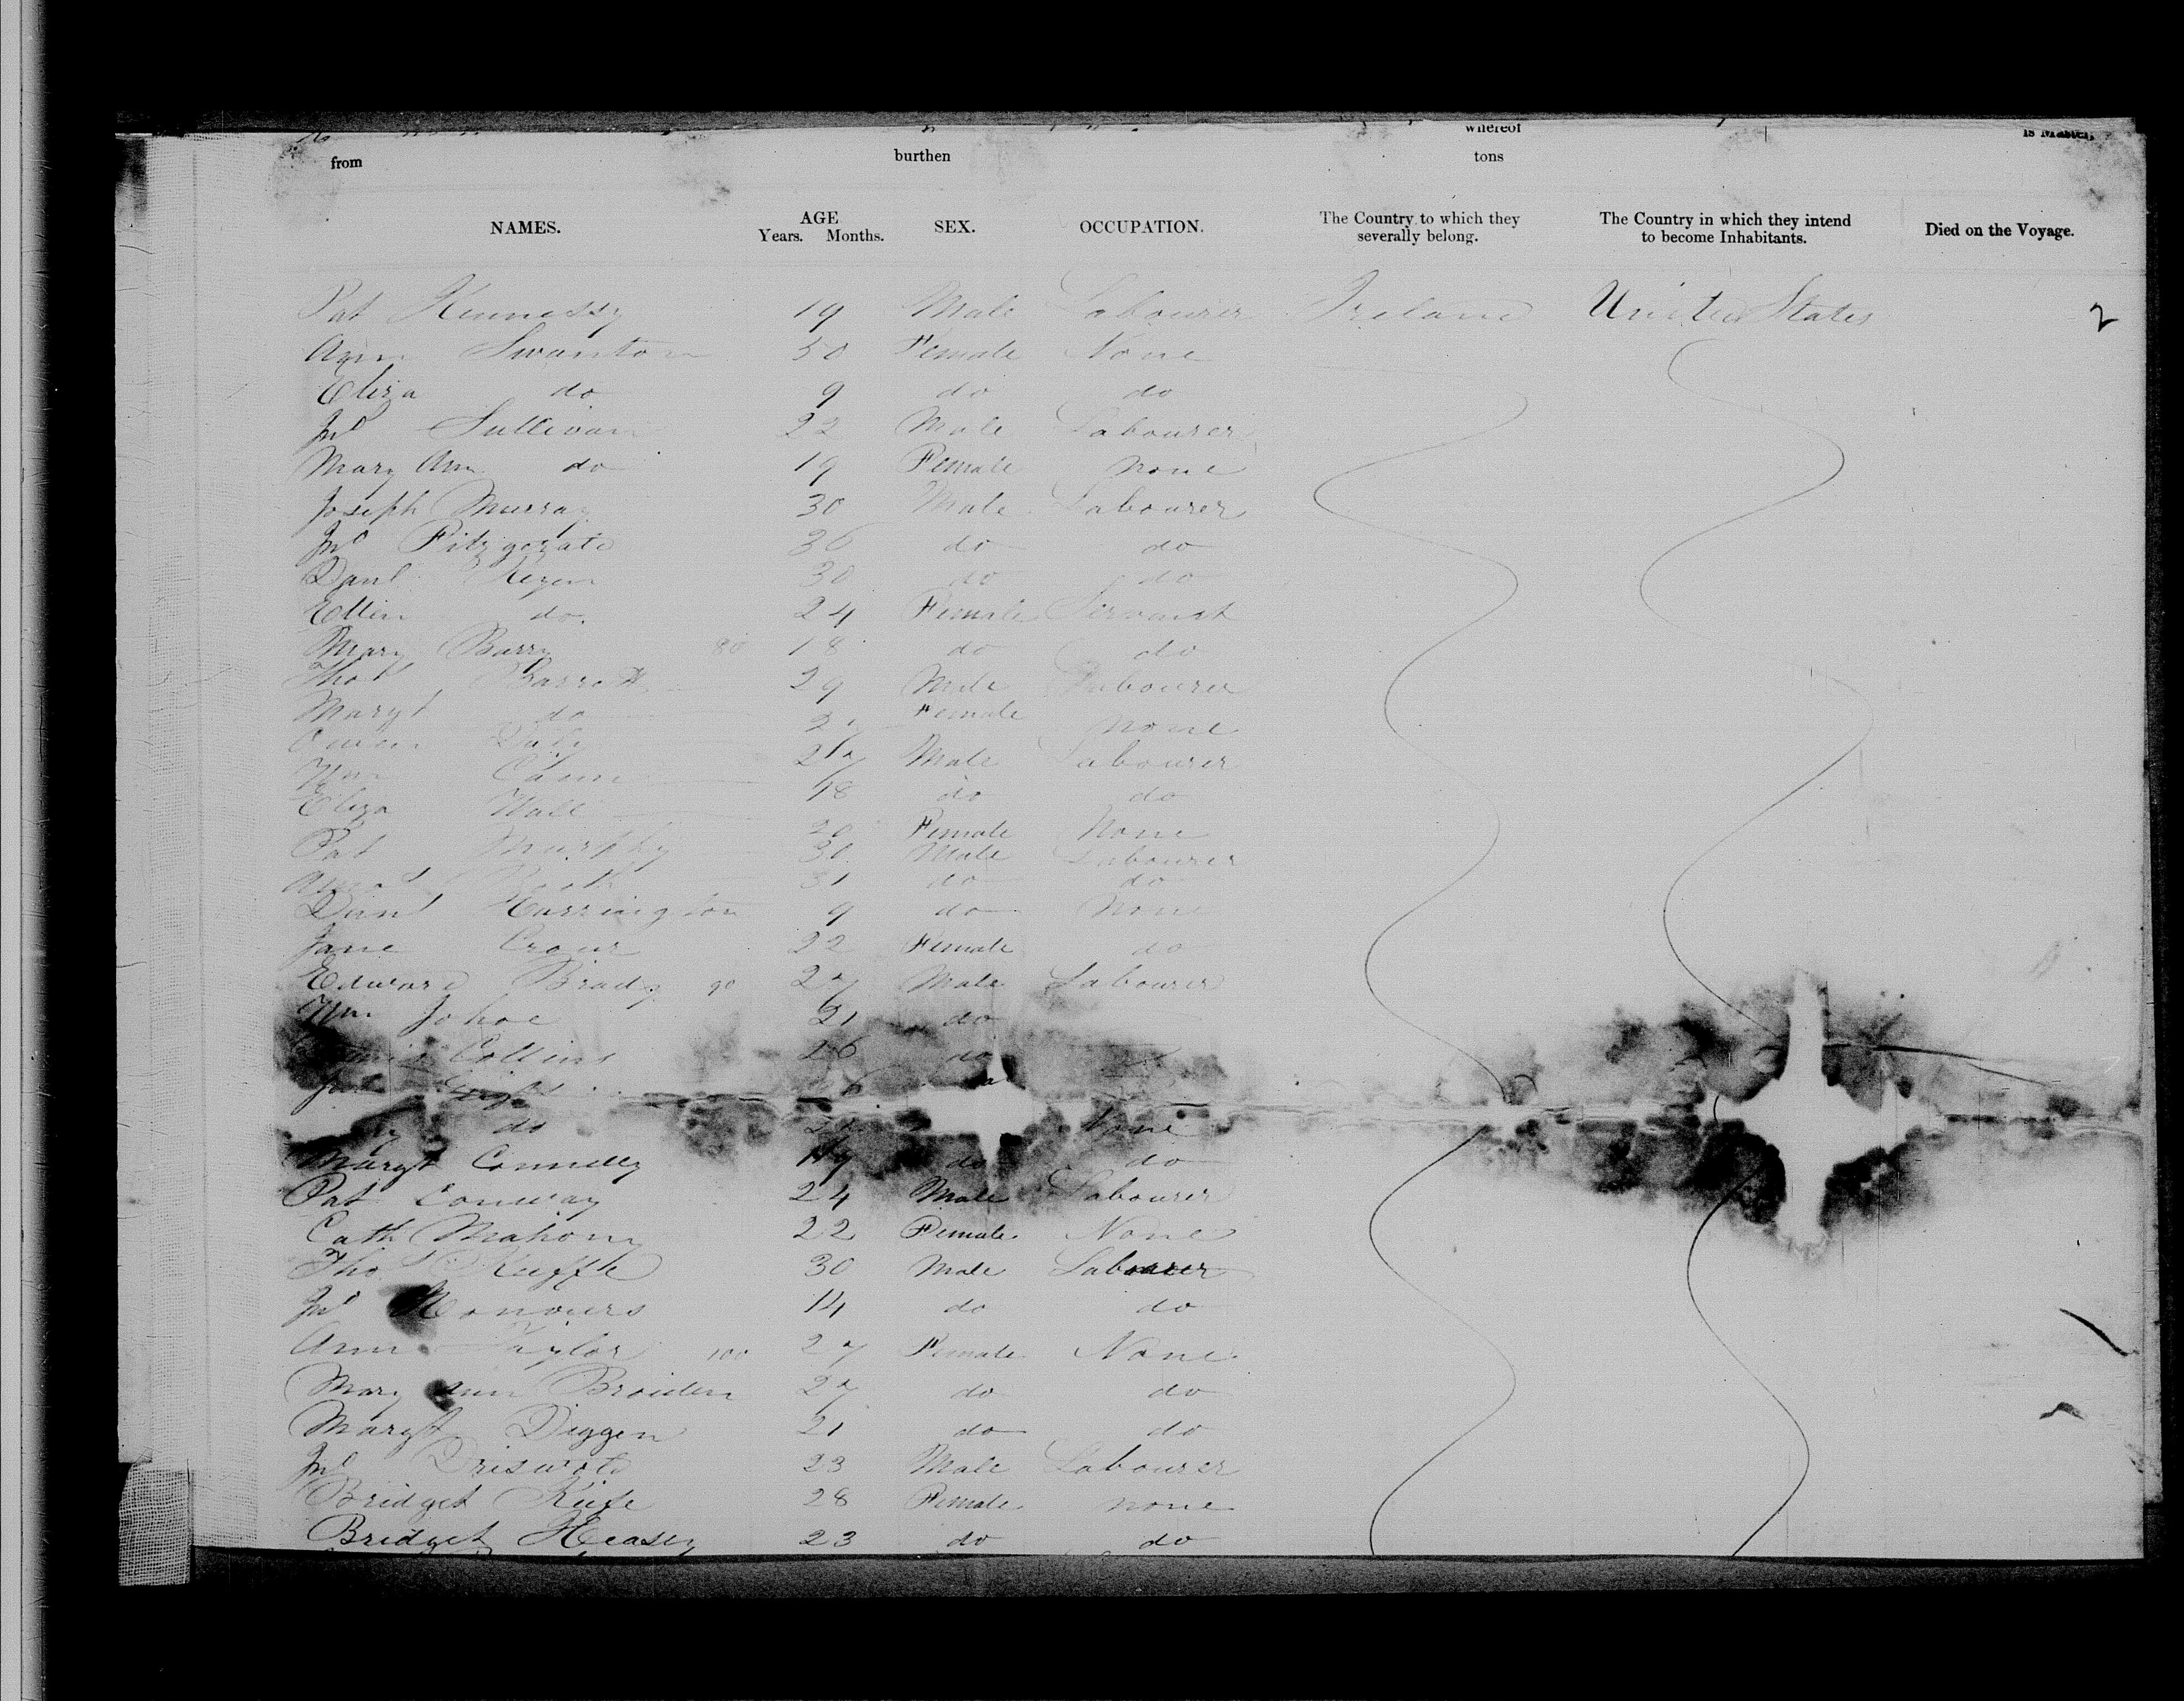 whereof is Master,
from burthen tons
NAMES. AGE SEX. OCCUPATION. The Country to which they The Country in which they intend Died on the Voyage.
Years. Months. severally belong. to become Inhabitants.
Pat Hennessy 19 Male Labourer Ireland United States 2
Ann Swanton 50 Female None
Eliza do 9 do do
Jno Sullivan 22 Male Labourer
Mary Ann do 19 Female none
Joseph Murray 30 Male Labourer
Jno Fitzgerald 36 do do
Danl Regan 30 do do
Ellen do 24 Female Servant
Mary Barry 80 18 do do
Thos Barrett 29 Male Labourer
Margt do Female none
Owen Daly Male Labourer
Wm 18 do do
Eliza Wall 20 Female None
Pat Murphy 30 Male Labourer
31 do do
Danl Harrington 9 do None
Jane 22 Female do
Edward Brady 90 27 Male Labourer
Wm 21 do
Collins 26 do
Jno
do None
Margt Connelly do do
Pat Conway 24 Male Labourer
Cath Mahony 22 Female None
Thos 30 Male Labourer
Jno 14 do do
Ann Taylor 100 27 Female None
Mary Ann 27 do do
Margt Diggen 21 do do
Jno 23 Male Labourer
Bridget 28 Female none
Bridget 23 do do